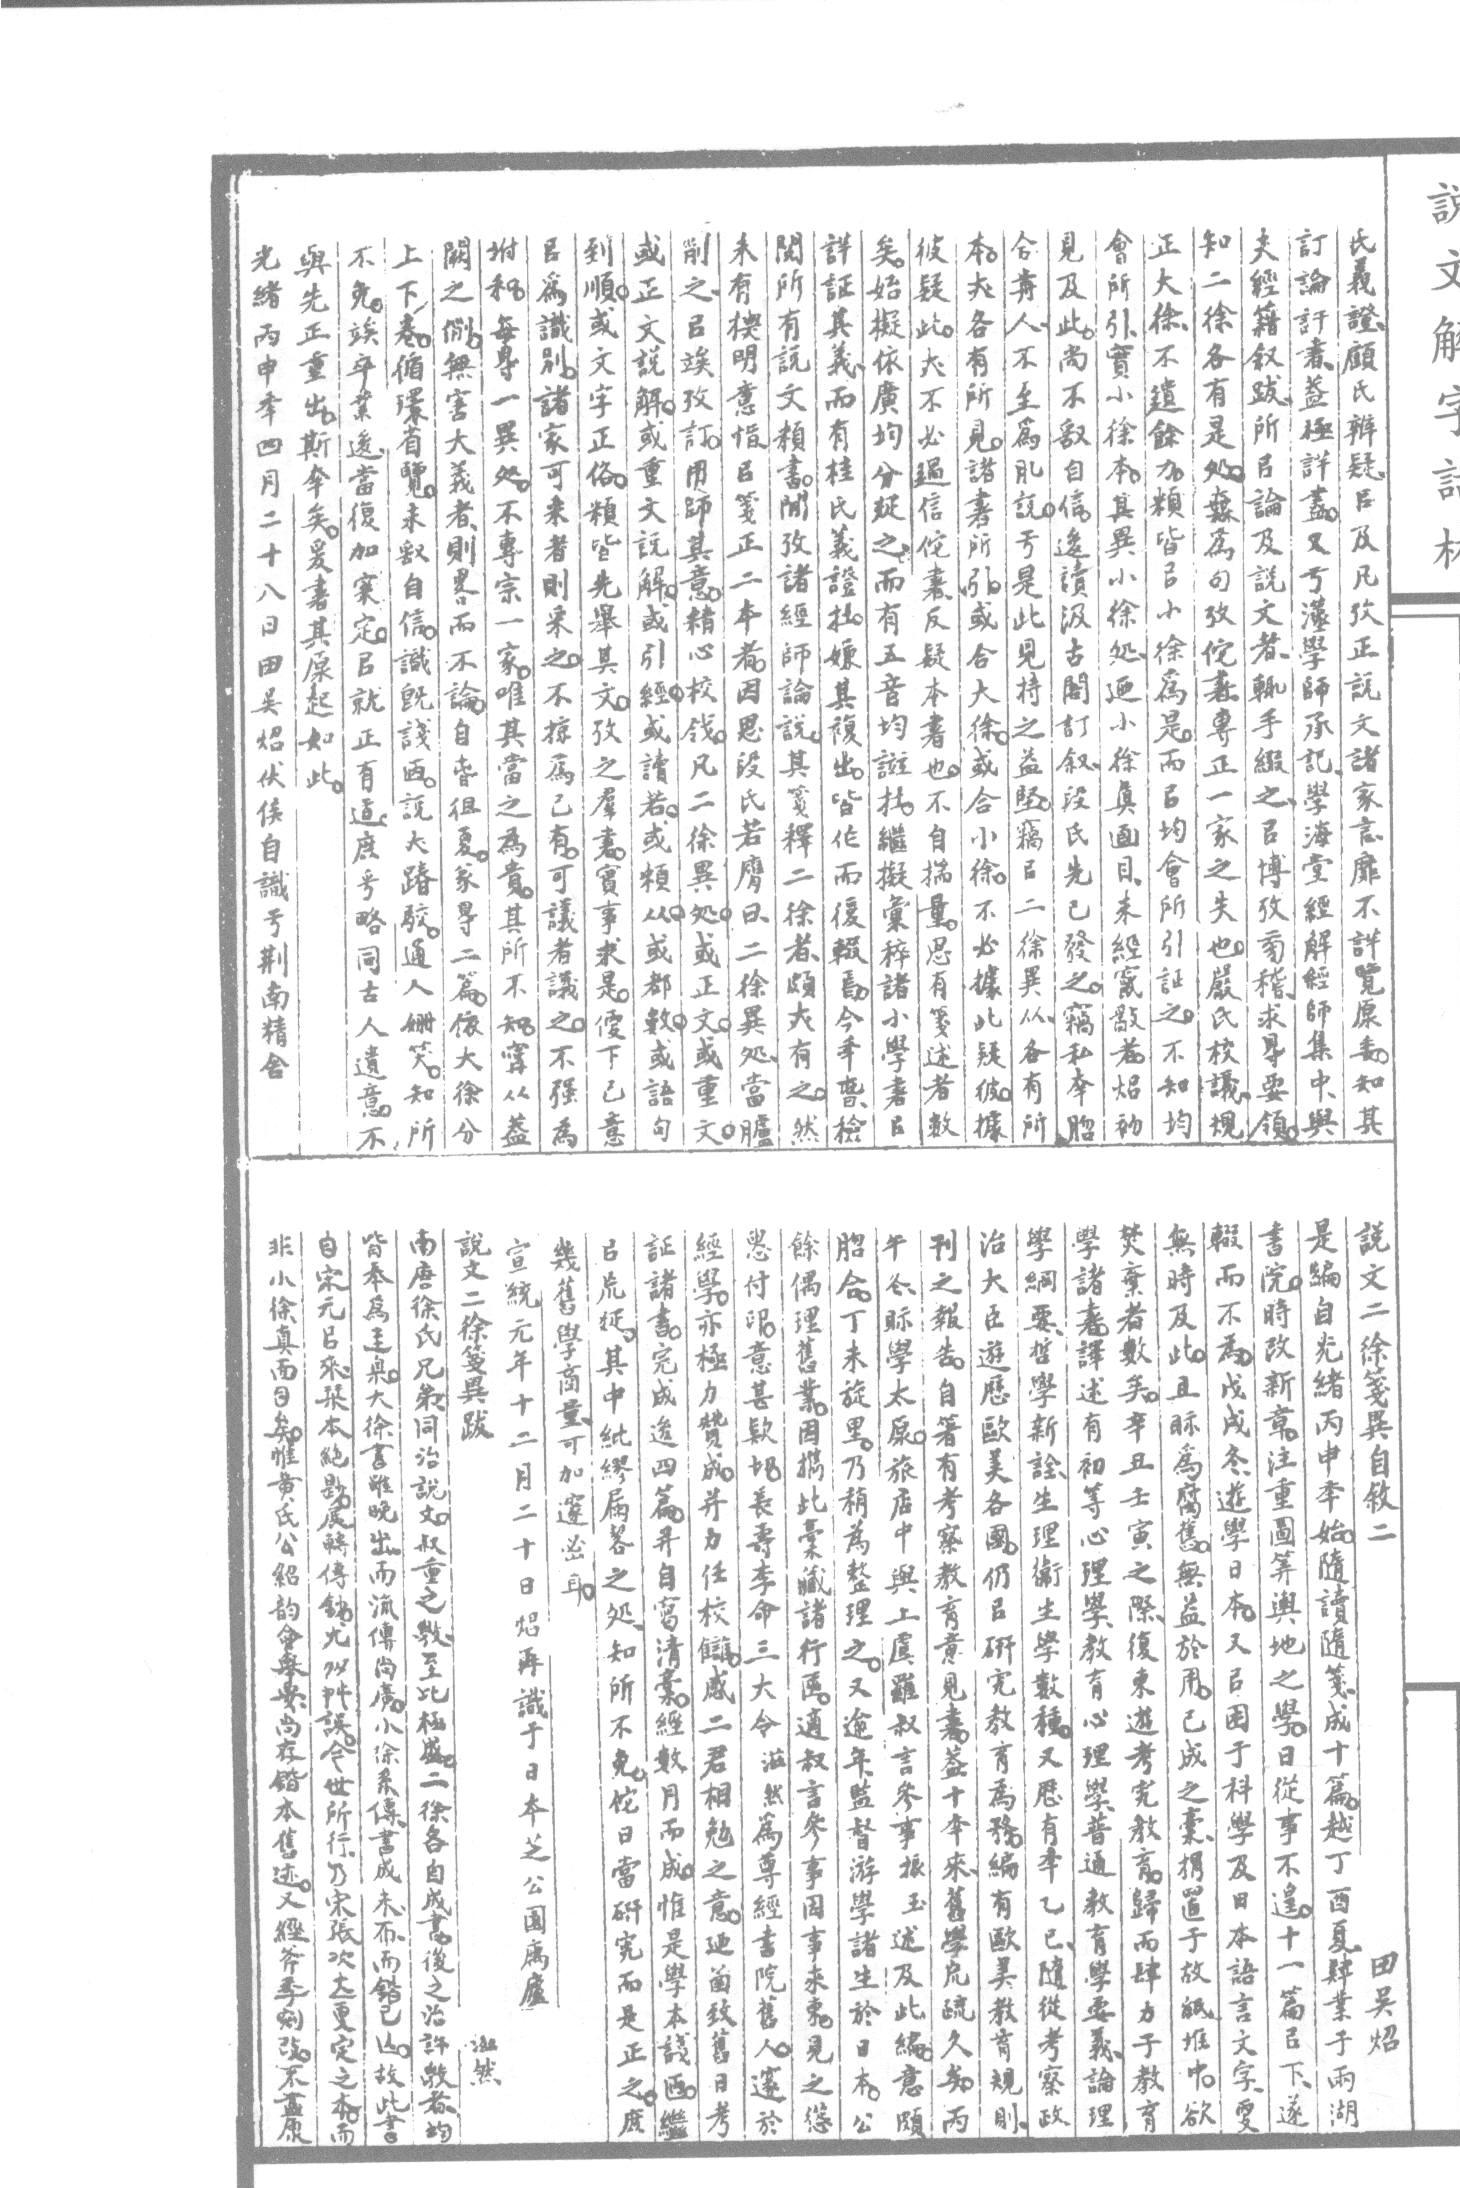 說文解字詁林
氏義證、顧氏辨疑、㠯及凡攷正說文諸家言、靡不詳覽原委。知其
訂論許書、益極詳盡。又于漢學師承記、學海堂經解經師集中、與
夫經籍叙跋、所㠯論及說文者、輒手綴之、㠯博攷蒭稽、求㝵要領。
知二徐各有是処。蘇為句攷侂書、專正一家之失也。嚴氏校議、規
正大徐、不遺餘力、類皆㠯小徐為是。而㠯均會所引証之。不知均
會所引、實小徐本。其異小徐処、迺小徐真面目、未經竄敚者。炤初
見及此。尚不敢自信。逡讀汲古閣訂叙、段氏先已發之。竊私幸䏰
合前人、不至為肊說。于是此見持之益堅。竊㠯二徐異从、各有所
本。大各有所見。諸書所引。或合大徐。或合小徐。不必據此疑彼。據
彼疑此。大不必過信侂書、反疑本書也。不自揣量。思有箋述者數
矣。始擬依廣均分疑之、而有五音均譜在。繼擬彙稡諸小學書㠯
詳証其義、而有桂氏義證在。嫌其複出。皆作而復輟焉。今年㬱、檢
閱所有說文類書。閒攷諸經師論說。其箋釋二徐者、頗大有之。然
未有㮣明意恉、㠯箋正二本者。因思段氏若膺曰、二徐異処、當臚
削之、㠯竢攷訂。用師其意。精心校戗。凡二徐異処。或正文。或重文。
或正文說解。或重文說解。或引經。或讀若。或類从。或都數。或語句
到順。或文字正俗。類皆先舉其文。攷之羣書。實事求是。便下己意
㠯為識別。諸家可采者則采之。不掠為己有。可議者議之。不強為
坿和。每㝵一異処。不專宗一家。唯其當之為貴。其所不知、寧从蓋
闕之例。無害大義者、則畧而不論。自春徂夏。㝵二篇。依大徐分
上下卷。循環省覽。未敢自信。識旣諓㐁。說大踳駮。通人姍笑。知所
不免。竢卒業逡、當復加寀定。㠯就正有道。庶乎略同古人遺意。不
與先正重出。斯幸矣。爰書其原起如此。
光緒丙申年四月二十八日田吳炤伏侯自識于荆南精舍
說文二徐箋異自敘二
田吳炤
是編自光緒丙申年始。隨讀隨箋。成十篇。越丁酉夏、肄業于兩湖
書院。時改新章。注重圖筭輿地之學。日從事不遑。十一篇㠯下、遂
輟而不為。戊戌冬、遊學日本。又㠯困于科學及日本語言文字、更
無時及此。且眎為腐舊。無益於用。已成之稾、捐置于故紙堆中。欲
焚棄者數矣。辛丑壬寅之際、復東遊考究教育。歸而肆力于教育
學諸書。譯述有初等心理學、教育心理學、普通教育學要義、論理
學綱要、哲學新詮、生理衛生學數種。又歷有年乙巳、隨從考察政
治大臣遊歷歐美各國。仍㠯研究教育為務。編有歐美教育規則、
刊之報告。自箸有考察教育意見書。蓋十年來、舊學荒疏久矣。丙
午冬、眎學太原。旅店中與上虞羅叔言參事振玉述及此編。意頗
䏰合。丁未旋里。乃稍為整理之。又逾年、監督游學諸生於日本。公
餘偶理舊業。因攜此稾、藏諸行匧。適叔言參事因事來東。見之慫
恿付印。意甚歎切。長壽李命三大令滋然為尊經書院舊人。邃於
經學。亦極力贊成。并力任校讎。感二君相勉之意。迺酋致舊日考
証諸書。完成逡四篇。并自寫清稾。經數月而成。惟是學本諓㐁。繼
㠯荒疑。其中紕繆屚畧之処、知所不免。侂日當研究而是正之。庶
幾舊學商量、可加邃密耳。
宣統元年十二月二十日炤再識于日本芝公園寓廬
說文二徐箋異跋
滋然
南唐徐氏兄弟、同治說文。叔重之敎、至此極盛。二徐各自成書。後之治許敎者、均
皆奉為圭臬。大徐書雖晚出、而流傳尚廣。小徐系傳、書成未布、而鍇已亾。故此書
自宋元㠯來、栞本絕尟。展轉傳鈔、尤以舛誤。今世所行、乃宋張次立更定之本。而
非小徐真面目矣。惟黃氏公紹韵會舉要、尚存鍇本舊迹。又經斧季剜改。不盡康